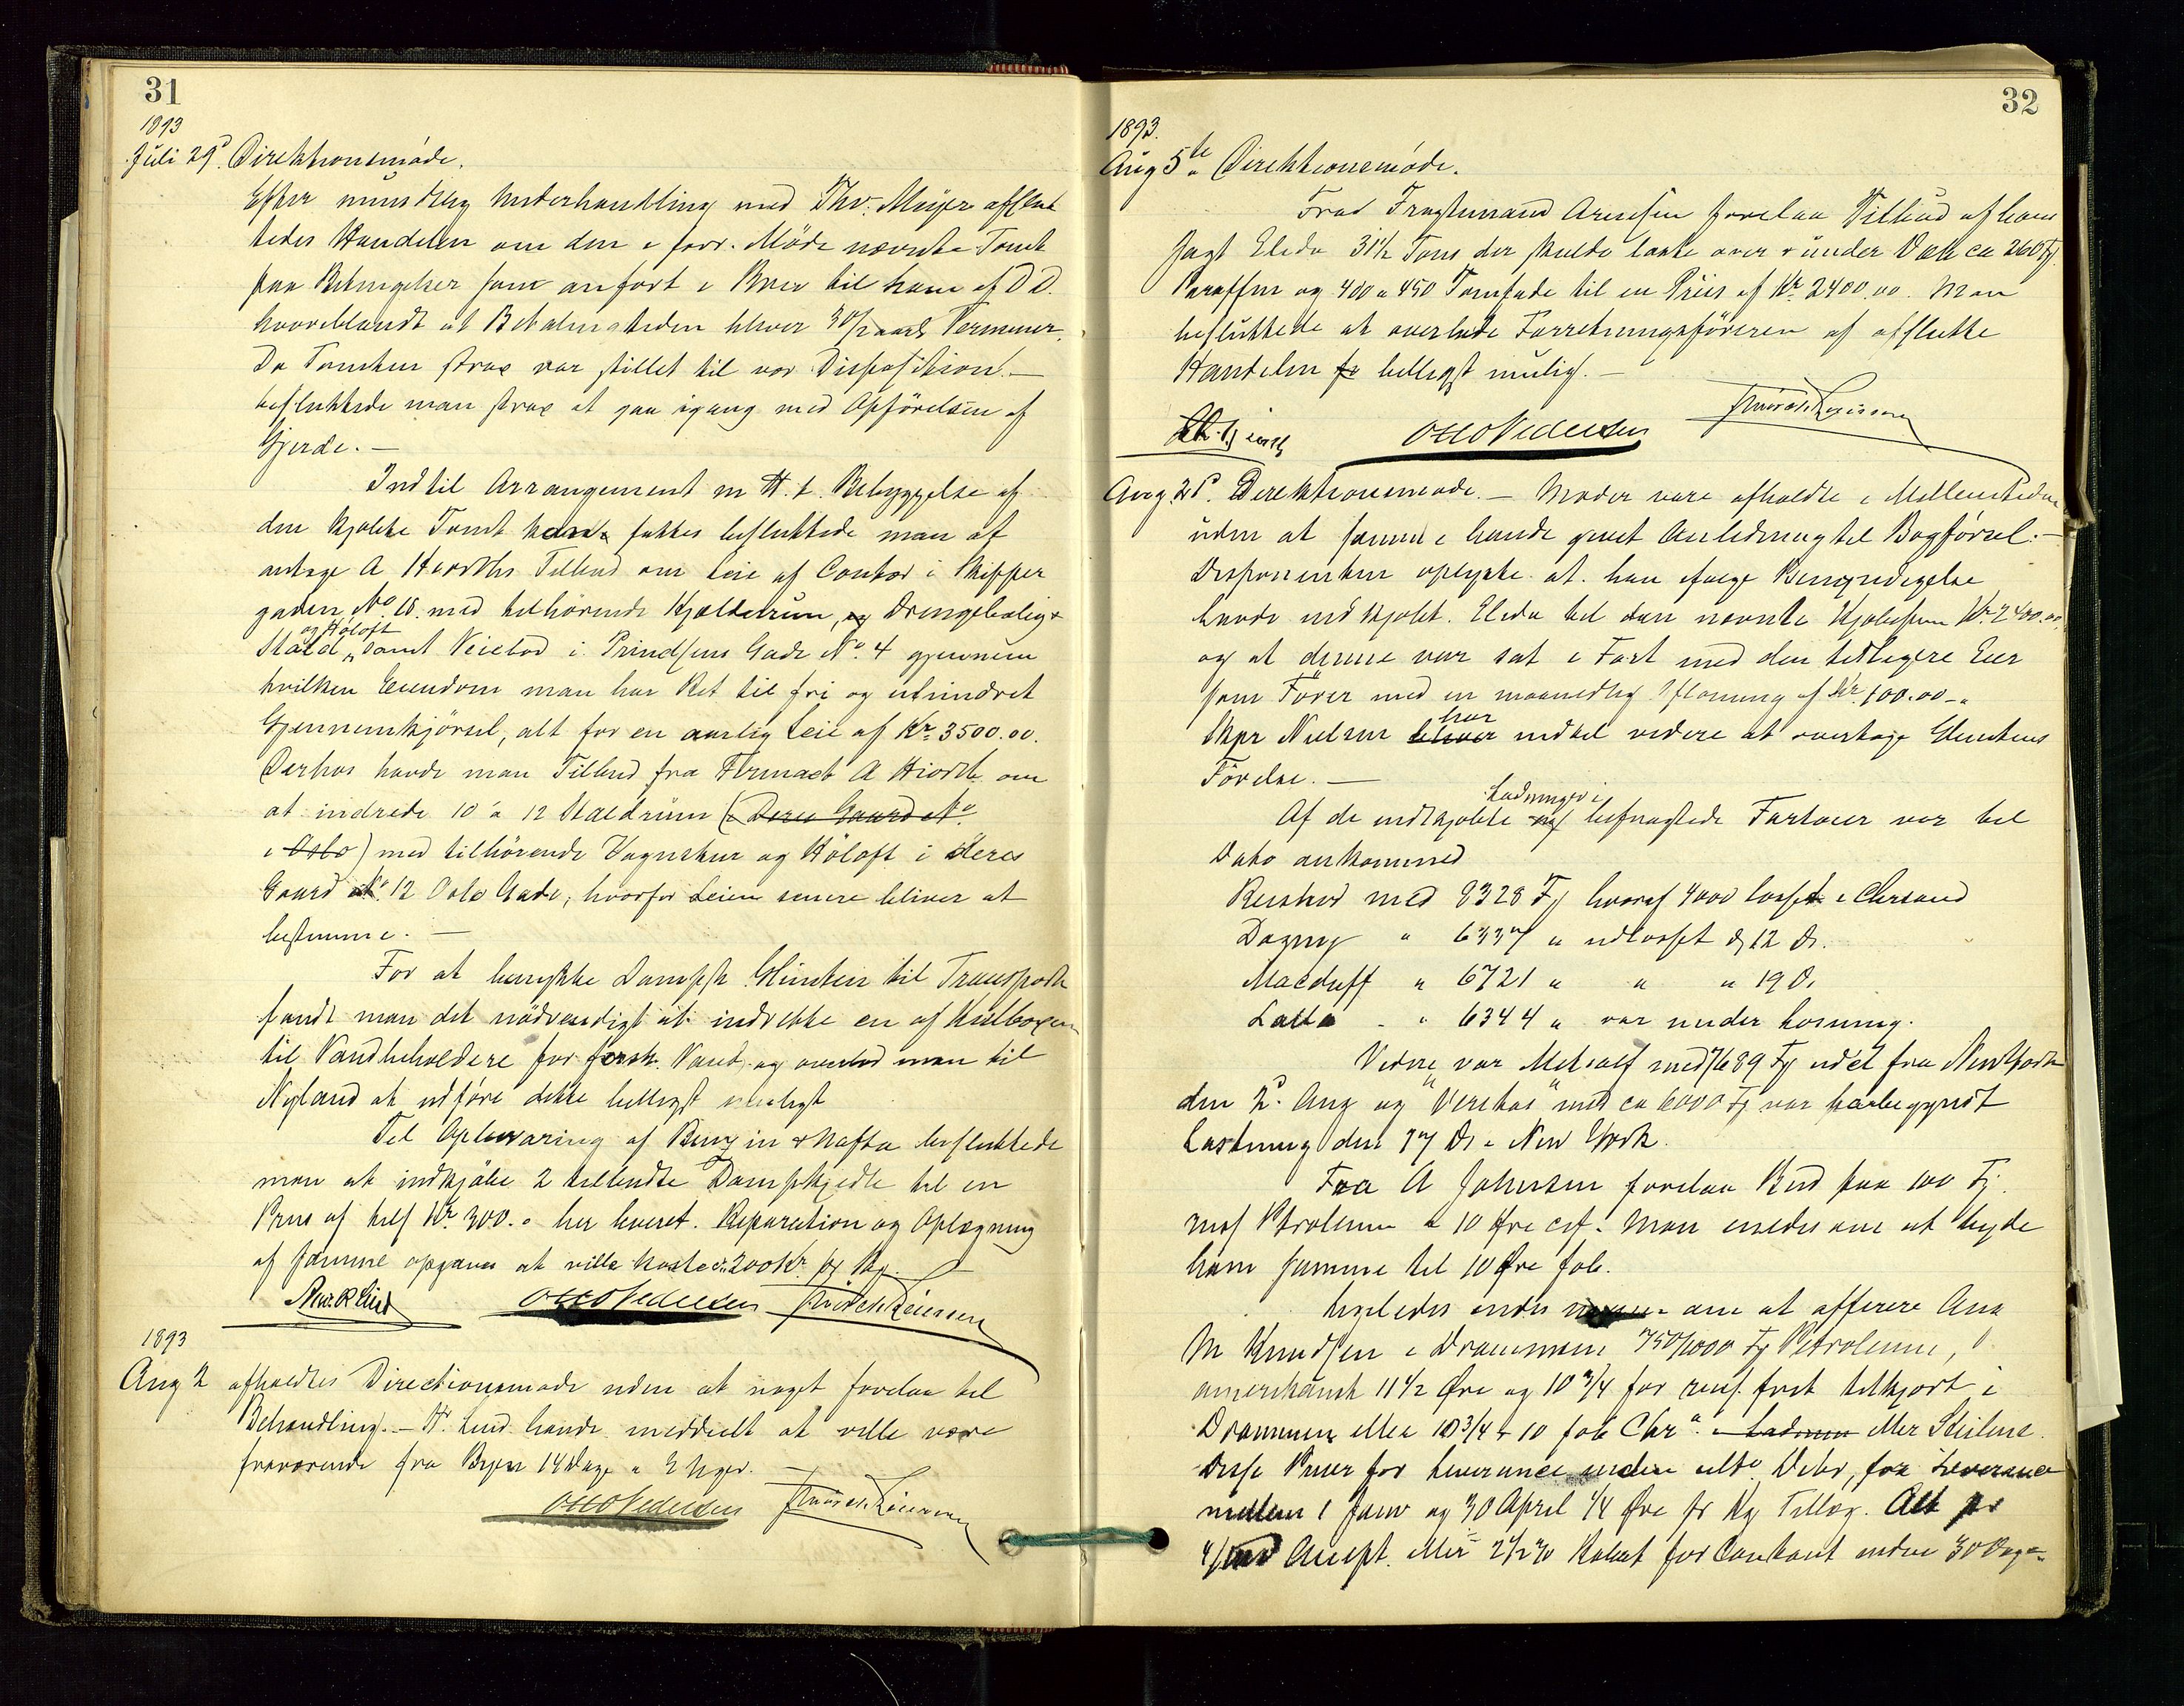 31
1893
Juli 29. Direktionsmøde.
Efter mundtlig Underhandling med Thv. Meyer afslut
tedes Handelen om den i forr. Møde nævnte Tomt
paa Betingelser som anført i Brev til ham af D D.
hvoriblandt at Betalingstiden bliver 30 1/2 aarl. Terminer.
Da Tomten strax var stillet til vor Disposition. —
besluttede man strax at gaa igang med Opførelsen af
Gjerde. —
Indtil Arrangement m H. t. Bebyggelse af
den kjøbte Tomt kan fattes besluttede man at
antage A Hiorths Tilbud om Leie af Contor i Skipper
gaden No 18. med tilhörende Kjælderrum, Drengebolig &
og Höloft
Stald, samt Veiebod i Prindsens Gade No. 4 gjennem
hvilken Eiendom man har Ret til fri og uhindret
Gjennemkjörsel, alt for en aarlig Leie af Kr. 3500.00.
Derhos havde man Tilbud fra Firmaet A Hiorth om
at indrede 10 a 12 Staldrum (i Deres Gaard No
i Oslo) med tilhörende Vognskur og Höloft i deres
Gaard No 12 Oslo Gade, hvorfor Leien senere bliver at
bestemme. —
For at benytte Dampsk. Glimten til Transport
fandt man det nödvendigt at indrette en af Kulboxene
til Vandbeholdere for fersk Vand og overlod man til
Nyland at udföre dette billigst muligt
Til Opbevaring af Benzin & Nafta besluttede
man at indkjøbe 2 tilbudte Dampkjedle til en
Pris af tils Kr. 300. - her leveret. Reparation og Oplægning
af samme opgaves at ville koste c. 200 Kr pr
Otto Pedersen
1893
Aug 2 afholdtes Directionsmøde uden at noget forelaa til
Behandling. — Hr. Lind havde meddelt at ville være
fraværende fra Byen 14 Dage a 3 Uger. —
Otto Pedersen
32
1893.
Aug 5te Direktionsmøde.
Fra Fragtmand Arnesen forelaa Tilbud af hans
Jagt Eleda 31 1/2 Tons der skulde laste over & under Dæk ca 260 Fj
Paraffin og 400 a 450 Tomfade til en Priis af Kr. 2400.00. Man
besluttede at overlade Forretningsföreren at afslutte
Handelen billigst mulig. —
Otto Pedersen
Aug. 21. Direktionsmøde. — Møder vare afholdte i Mellemtiden
uden at samme havde givet Anledning til Bogförsel. —
Disponenten oplyste at han ifølge Bemyndigelse
havde indkjøbt Eleda til den nævnte Kjøbesum Kr. 2400.00
og at denne var sat i Fart med den tidligere Eier
som Förer med en maanedlig Aflönning af Kr. 100.00 —
har
Skpr Nielsen bliver indtil videre at overtage Glimtens
Förelse. —
Ladninger i
Af de indkjøbte og befragtede Fartøier var til
Dato ankommed
Reishod med 8328 Fj hvoraf 4000 losset i Chrsand
Dagny " 6337 " udlosset d 12 ds.
Macduff " 6721 " " " 19 d.
Latta " 6344 " var under losning.
Videre var Metcalf med 7689 Fj udct fra New York
den 2. Aug og "Veritas" med ca 6000 Fj var paabegyndt
Lastning den 17 ds i New York.
Fra A Johnsen forelaa Bud paa 100 Fj.
russ Petroleum a 10 Øre cif. Man enedes om at byde
ham samme til 10 Øre fob.
Ligeledes enedes om at offerere Aug
M Knudsen i Drammen 750/1000 Fj Petroleum,
amerikansk 11 1/2 Øre og 10 3/4 for russ. frit tilkjørt i
Drammen eller 10 3/4 & 10 fob Chra. eller Steilene.
Disse Priser for Leverance inden ult. Debr, for Leverance
mellem 1 Janr og 30 April 1/4 Øre pr Kg Tillæg. Alt pr
4/ Accept. eller 2 1/2 % Rabat for Contant inden 30 Dage